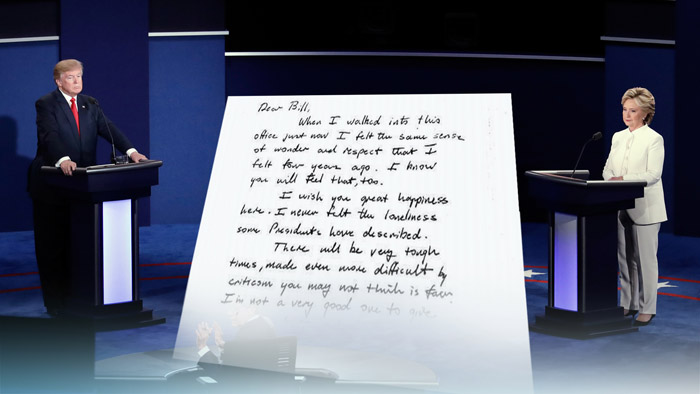 Dear Bill,
When I walked into this
office just now I felt the same sense
of wonder and respect that I
felt four years ago. I know
you will feel that, too.
I wish you great happiness
here. I never felt the loneliness
some Presidents have described.
There will be very tough
times, made even more difficult by
criticism you may not think is fair.
I'm not a very good one to give